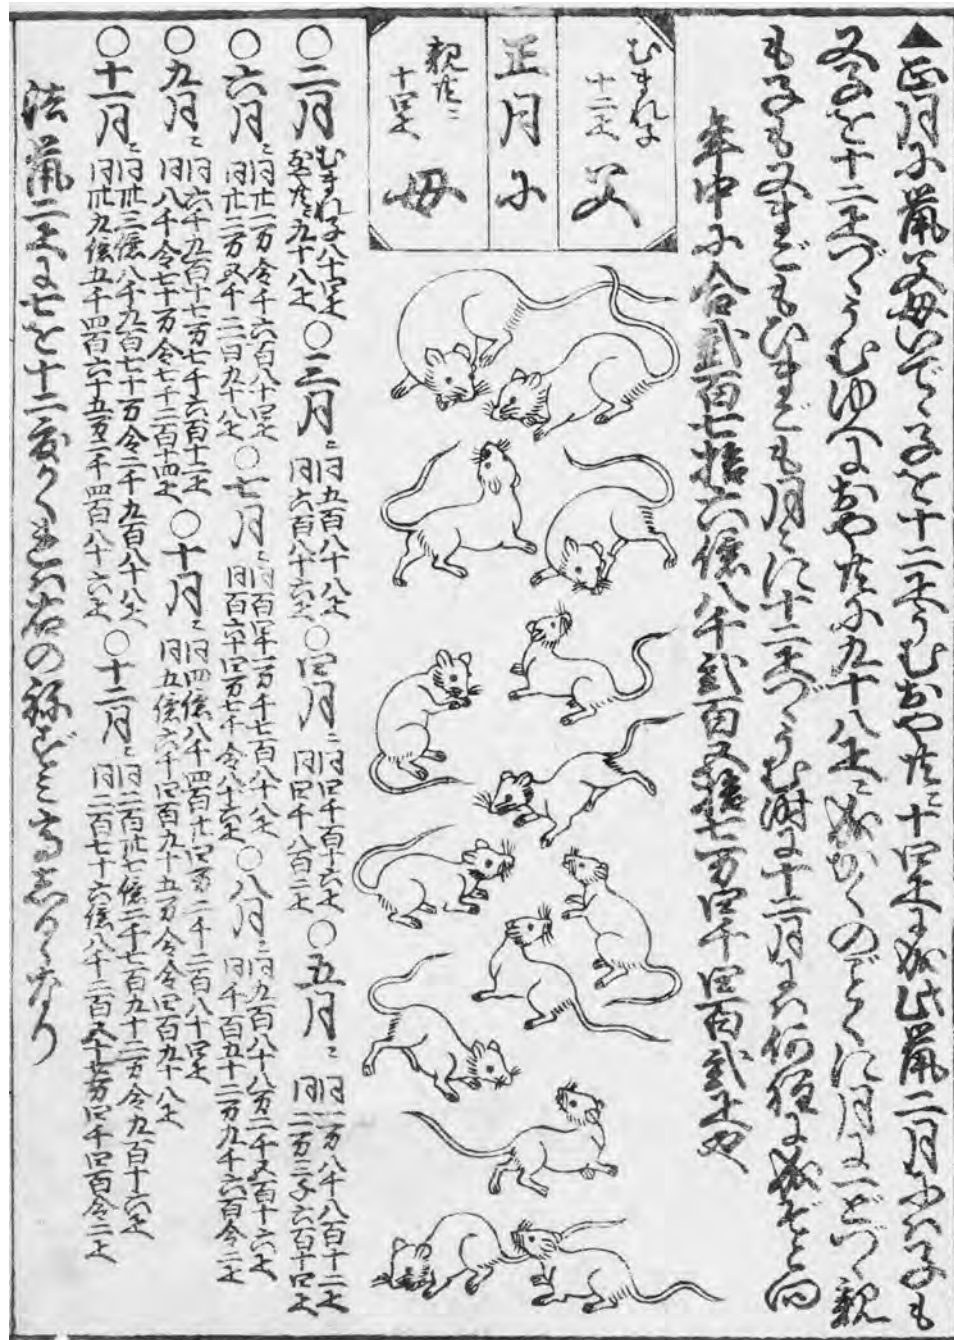 ▲正月に鼠父母いでゝ子を十二疋うむおや共ニ十四疋に成此鼠二月にハ子も
又子を十二疋づゝうむゆへにおや共に九十八疋ニ成かくのごとくに月に一どづゝ親
も子も又まごもひまごも月々に十二疋づゝうむ時に十二月にハ何程に成ぞと問
年中に合弐百七拾六億八千弐百五拾七万四千四百弐疋也
むまれ子
十二疋
父
正月に
親共ニ
十四疋
母
○二月ニむまれ子八十四疋
親共ニ九十八疋
○三月ニ同五百八十八疋
同六百八十六疋
○四月ニ同四千百十六疋
同四千八百二疋
○五月ニ同二万八千八百十二疋
同三万三千六百十四疋
○六月ニ同廿万令千六百八十四疋
同廿三万五千二百九十八疋
○七月ニ同百四十一万千七百八十八疋
同百六十四万七千令八十六疋
○八月ニ同九百八十八万二千五百十六疋
同千百五十二万九千六百令二疋
○九月ニ同六千九百十七万七千六百十二疋
同八千令七十万令七千二百十四疋
○十月ニ同四億八千四百廿四万三千二百八十四疋
同五億六千四百九十五万令四百九十八疋
○十一月ニ同卅三億八千九百七十万令二千九百八十八疋
同卅九億五千四百六十五万三千四百八十六疋
○十二月ニ同二百卅七億二千七百九十二万令九百十六疋
同二百七十六億八千二百五十七万四千四百令二疋
法鼠二疋に七を十二度かくれハ右の祢ずミ高しるゝなり